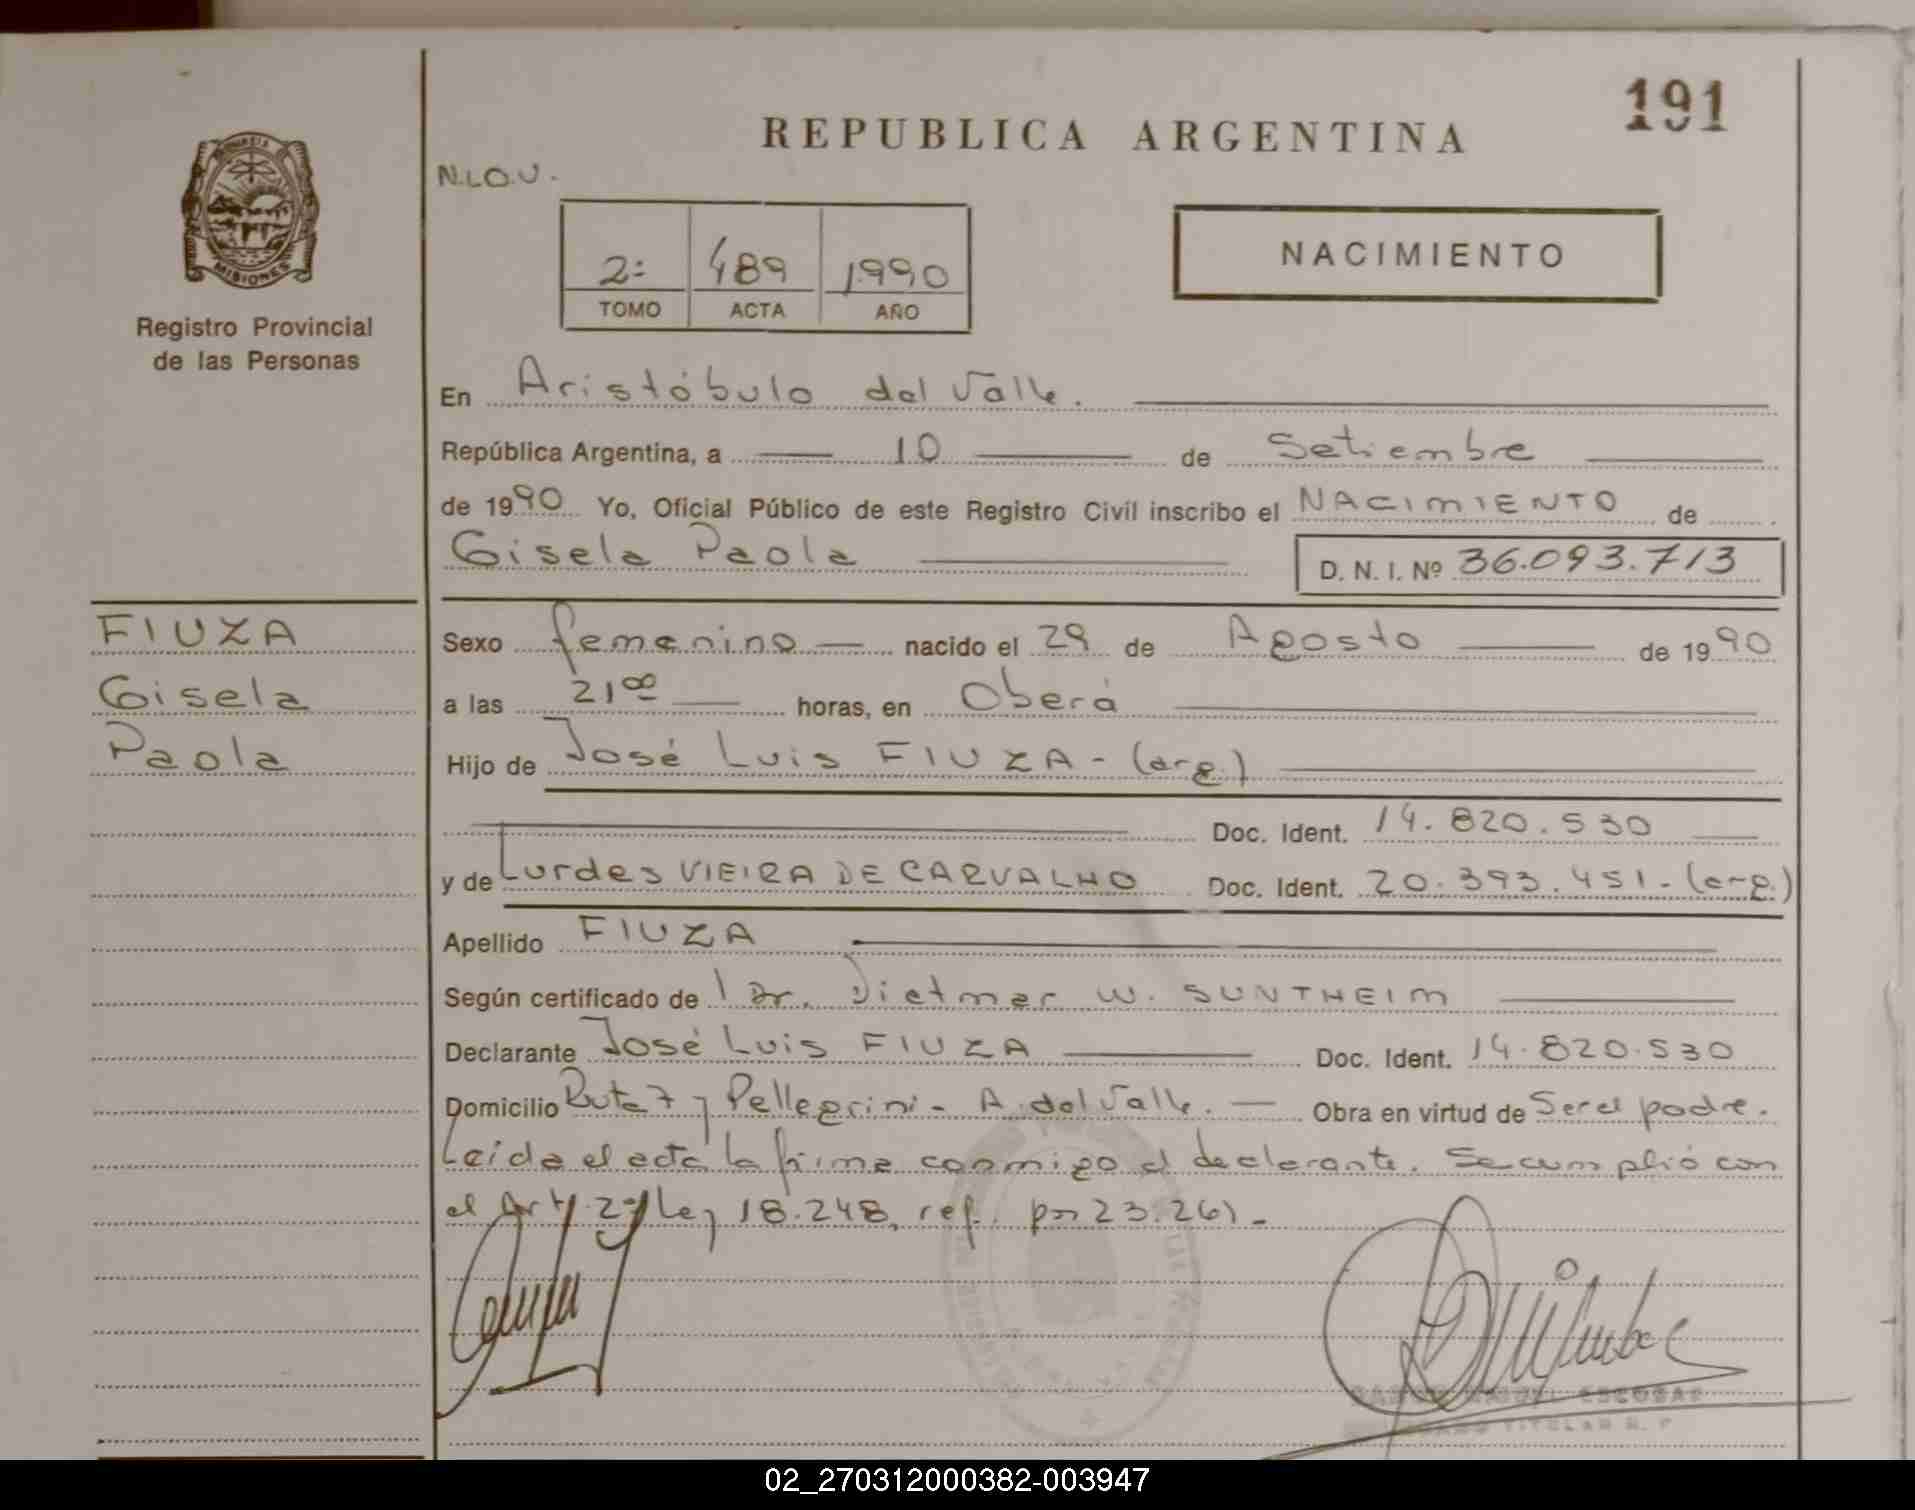 191
REPUBLICA ARGENTINA
N.L.O.U.
MISIONES
Registro Provincial
de las Personas
2º 489 1990
TOMO ACTA AÑO
NACIMIENTO
En Aristóbulo del Valle.
República Argentina, a 10 de Setiembre
de 1990 Yo, Oficial Público de este Registro Civil inscribo el NACIMIENTO de
Gisela Paola D. N. I. Nº 36.093.713
FIUZA
Gisela
Paola
Sexo femenino nacido el 29 de Agosto de 1990
a las 21 00 horas, en Oberá
Hijo de José Luis FIUZA - (arg.)
Doc. Ident. 14.820.530
y de Lurdes VIEIRA DE CARVALHO Doc. Ident. 20.393.451.- (arg.)
Apellido FIUZA
Según certificado de l Dr. Dietmar W. SUNTHEIM
Declarante José Luis FIUZA Doc. Ident. 14.820.530
Domicilio Ruta 7 y Pellegrini - A. del Valle. Obra en virtud de Ser el padre.
Leida el acta la firma conmigo el declarante. Se cumplió con
el Art. 2º Ley 18.248, ref. por 23.261.-
ESCOBAR
TITULAR R. P.
02_270312000382-003947